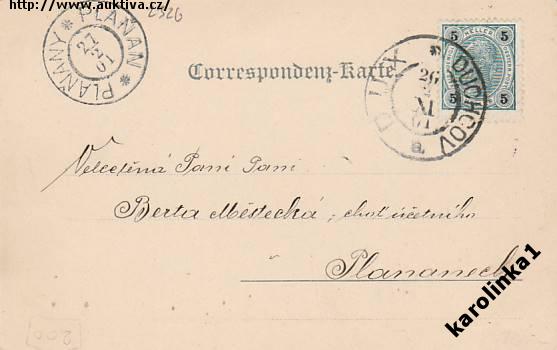 http://www.auktiva.cz/
2326
PLAŇAN * PLAŇANY *
27
01
Correspondenz-Karte
DUX * DUCHCOV
26
XI
01
a
5 HELLER 5
5 5
Velectěná Paní Paní
Berta Městecká, choť účetního
Plananech
200
karolinka1